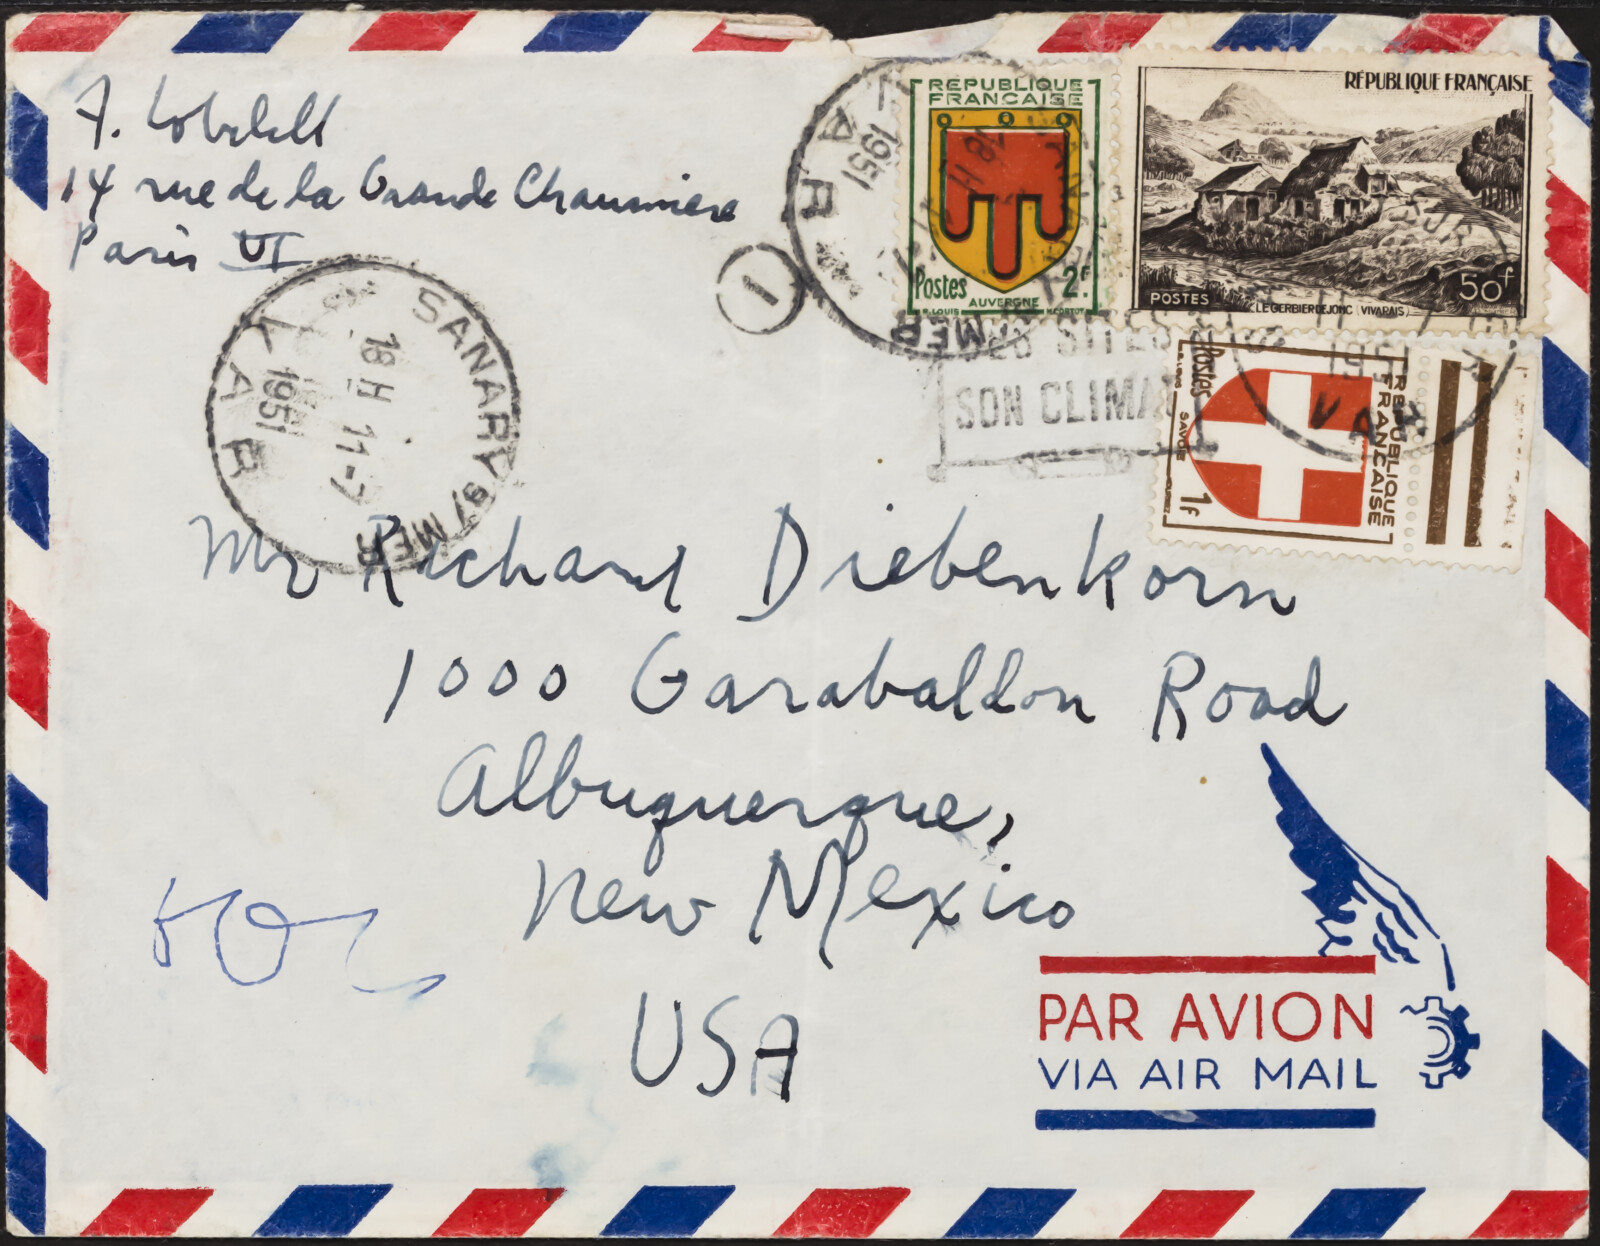 A. Lobdell
14 rue de la Grande Chaumiere
Paris VI
SANARY S/ MER
18 H 11-7
1951
VAR
1
VAR
1951
MER
RÉPUBLIQUE
FRANÇAISE
Postes 2F.
AUVERGNE
R.LOUIS
H.CORTOT
RÉPUBLIQUE FRANÇAISE
50f
POSTES
LE GERBIER DE JONC (VIVARAIS)
SES SITES
SON CLIMAT
VAR
RÉPUBLIQUE
FRANÇAISE
Postes
SAVOIE
1F
Mr Richard Diebenkorn
1000 Garabaldon Road
Albuquerque,
New Mexico
USA
PAR AVION
VIA AIR MAIL